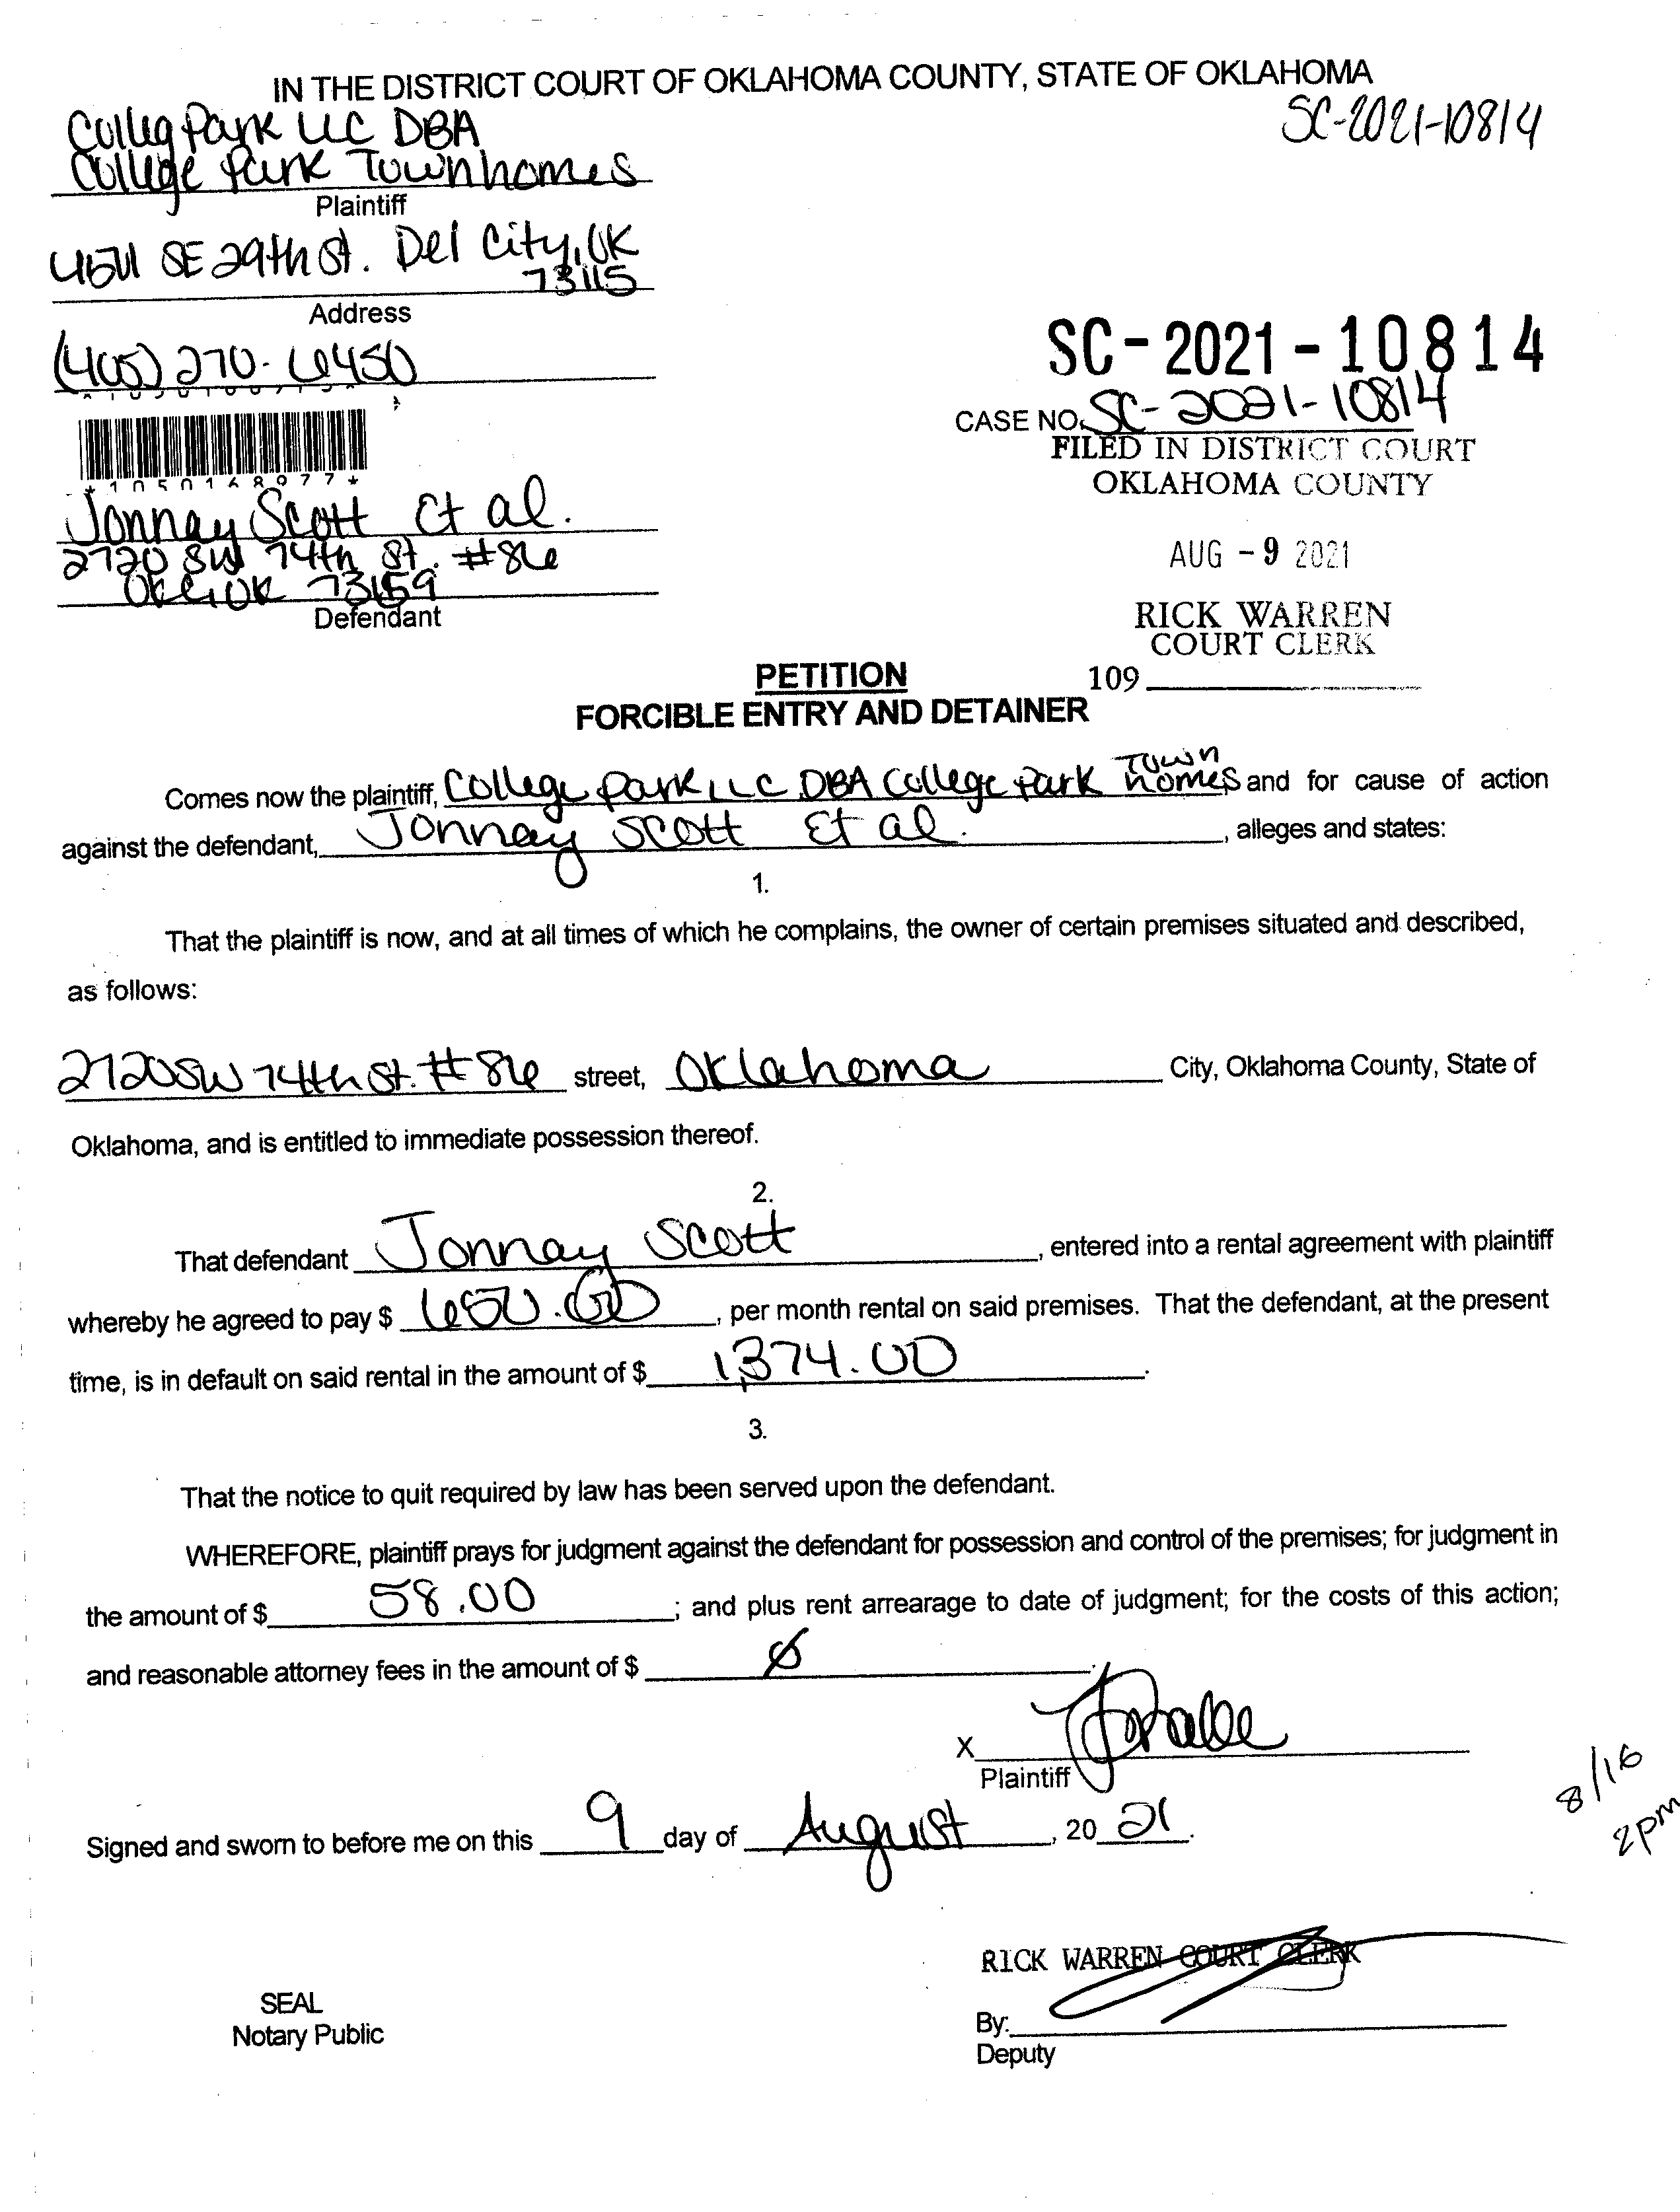 IN THE DISTRICT COURT OF OKLAHOMA COUNTY, STATE OF OKLAHOMA
SC-2021-10814
Colleg Park LLC DBA
College Park Townhomes
Plaintiff
SE 29th St. Del City, OK
73115
Address
(405) 270-6450
SC-2021-10814
CASE NO. SC-2021-10814
FILED IN DISTRICT COURT
OKLAHOMA COUNTY
AUG -9 2021
RICK WARREN
COURT CLERK
109
*1050148977*
Jonnay Scott Et al.
2720 SW 74th St. #86
OKC, OK 73159
Defendant
PETITION
FORCIBLE ENTRY AND DETAINER
Comes now the plaintiff, College Park LLC DBA College Park Town homes and for cause of action
against the defendant, Jonnay Scott Et al. , alleges and states:
1.
That the plaintiff is now, and at all times of which he complains, the owner of certain premises situated and described,
as follows:
2720 SW 74th St. #86 street, Oklahoma City, Oklahoma County, State of
Oklahoma, and is entitled to immediate possession thereof.
2.
That defendant Jonnay Scott , entered into a rental agreement with plaintiff
whereby he agreed to pay $ 650.00 , per month rental on said premises. That the defendant, at the present
time, is in default on said rental in the amount of $ 1,374.00 .
3.
That the notice to quit required by law has been served upon the defendant.
WHEREFORE, plaintiff prays for judgment against the defendant for possession and control of the premises; for judgment in
the amount of $ 58.00 ; and plus rent arrearage to date of judgment; for the costs of this action;
and reasonable attorney fees in the amount of $ Ø .
X
Plaintiff
8/16
2pm
Signed and sworn to before me on this 9 day of August , 20 21 .
RICK WARREN COURT CLERK
SEAL
Notary Public
By:
Deputy